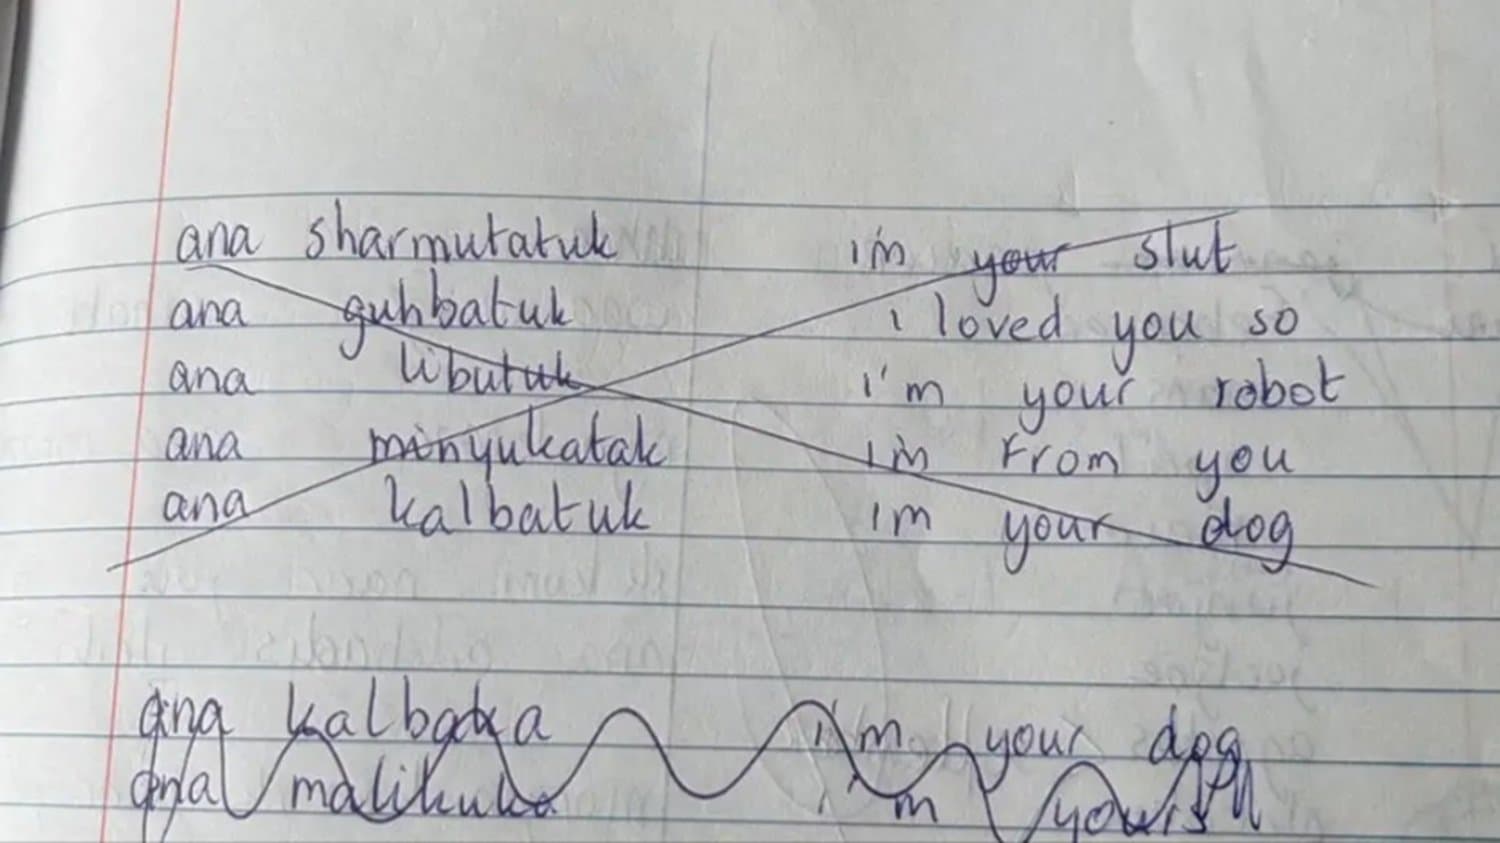 ana sharmutatuk i'm your slut
ana guhbatuk i loved you so
ana libutuk i'm your robot
ana minyukatak i'm from you
ana kalbatuk im your dog
ana kalbataka i'm your dog
ana malikuka i'm yours